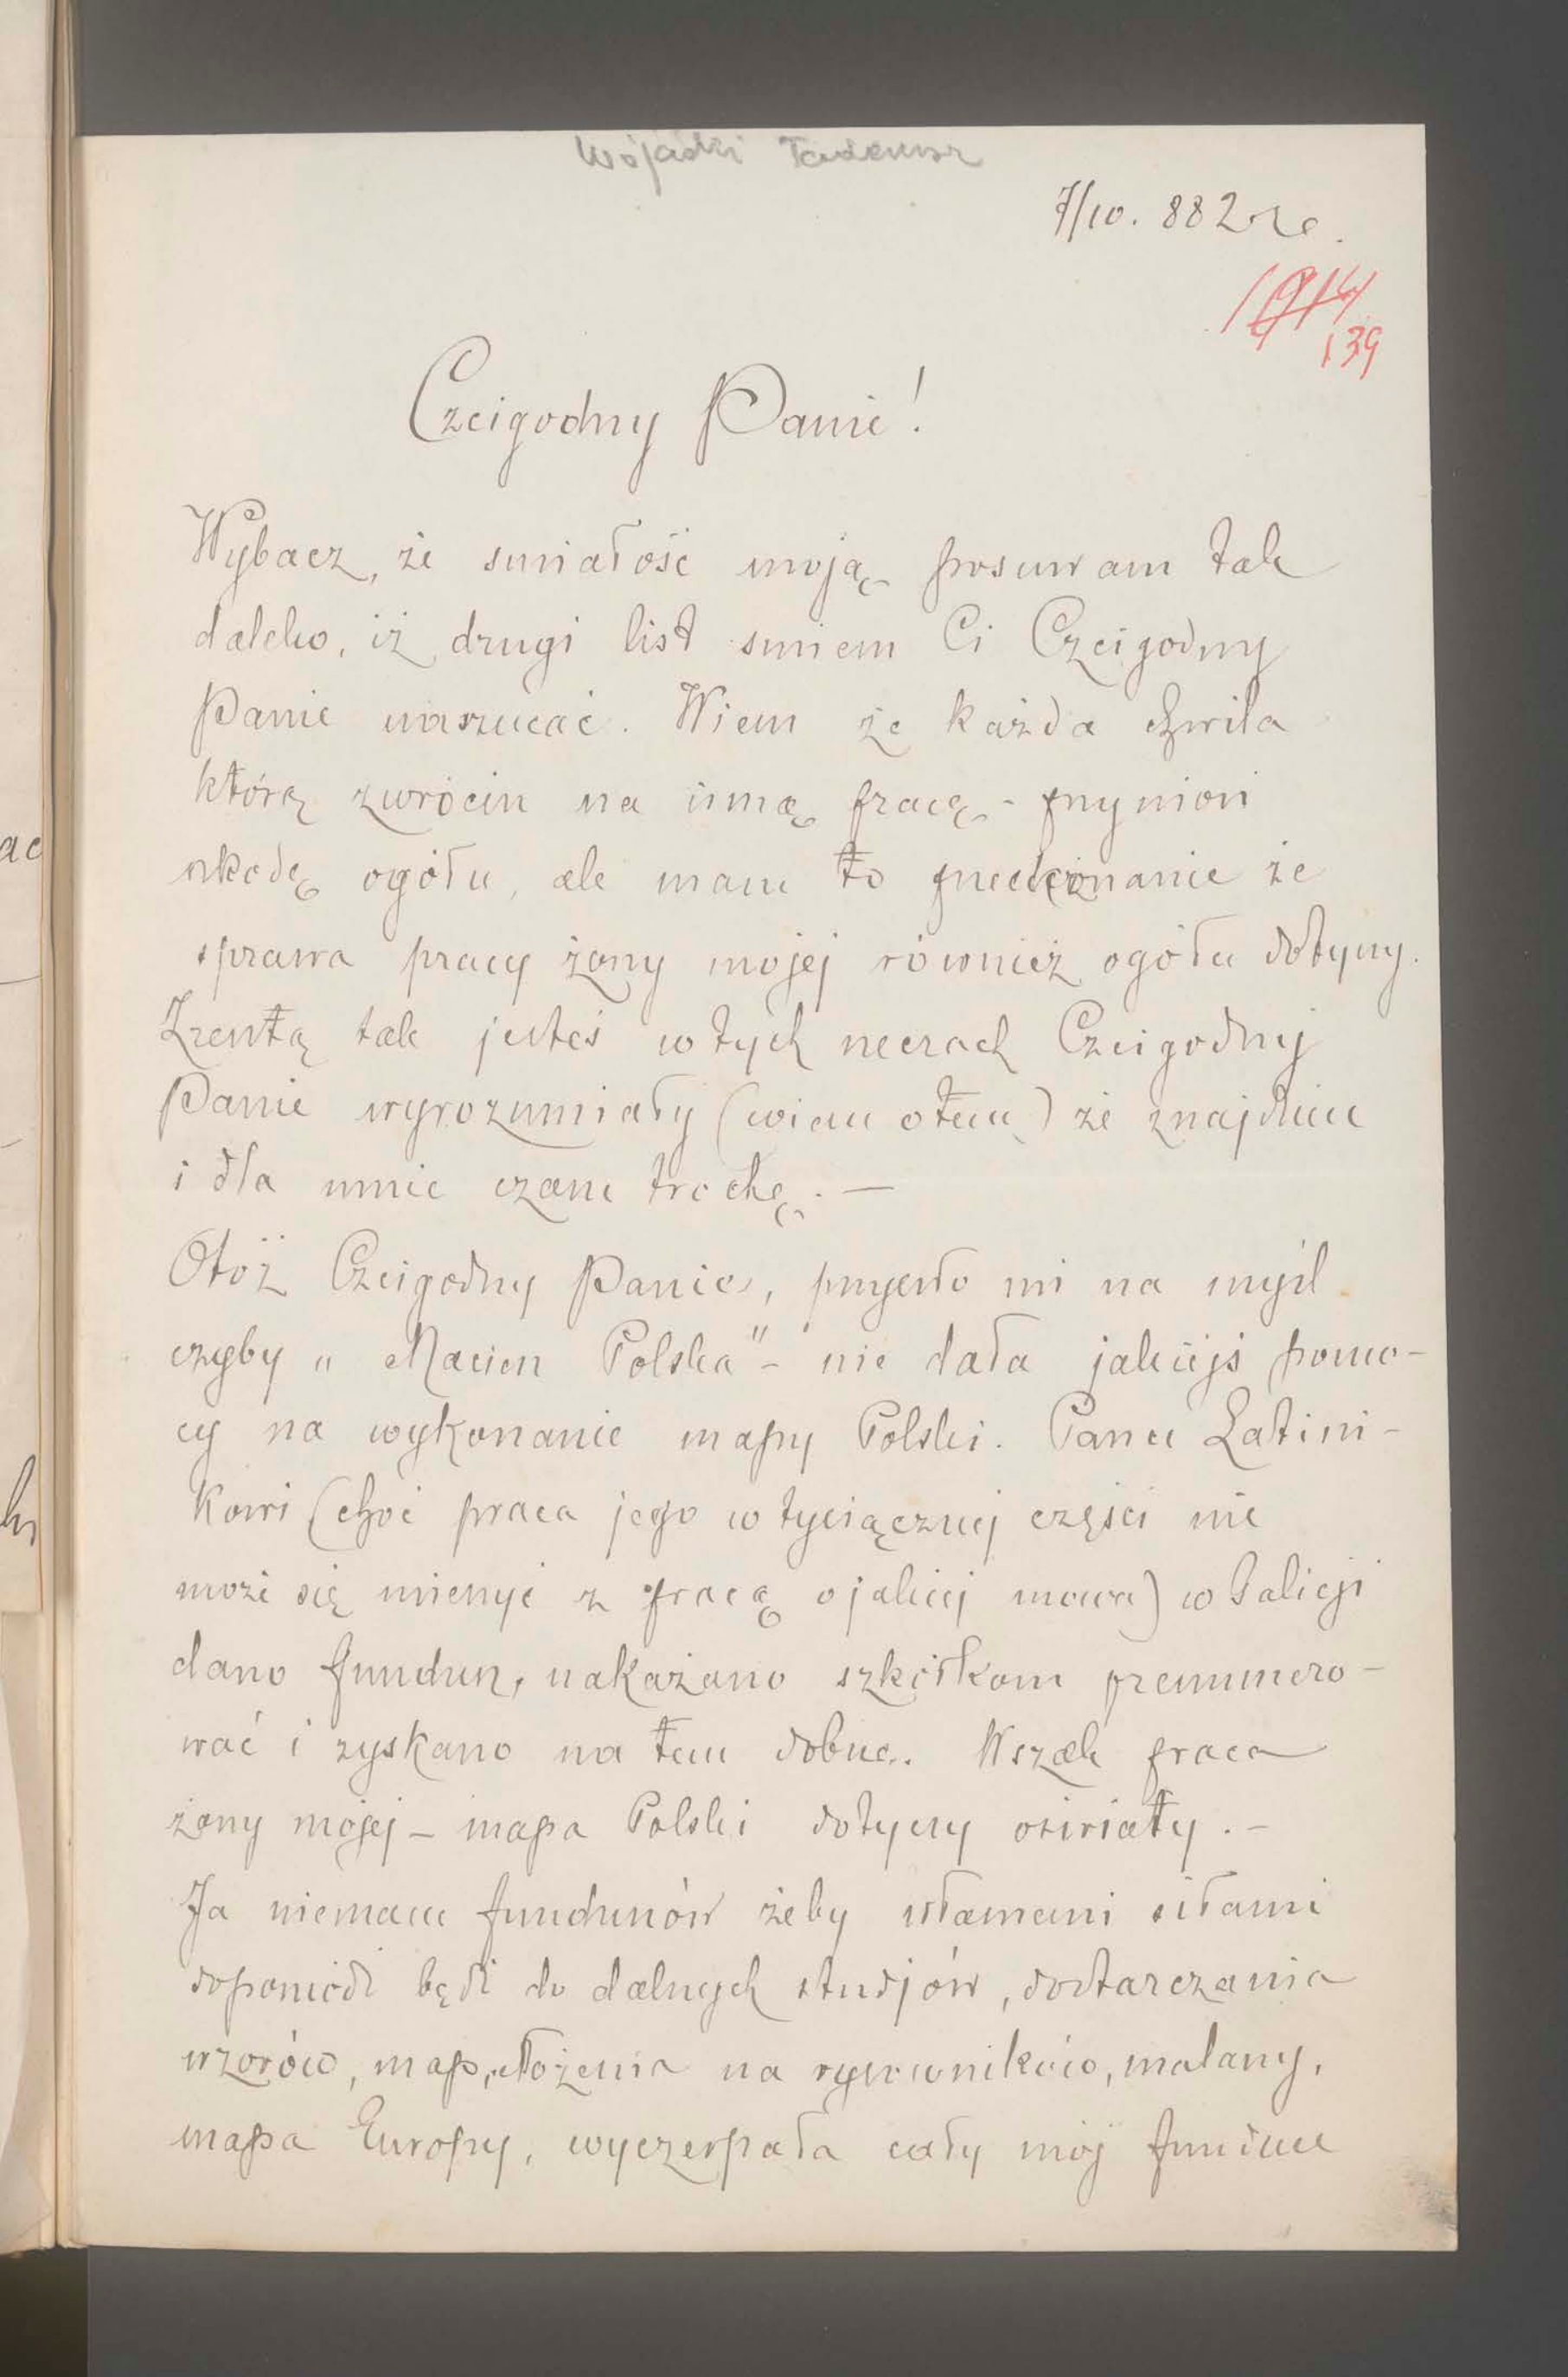 Wójcicki Tadeusz
7/10. 882 r.
139
Czcigodny Panie!
Wybacz, że smiałość moją posuwam tak
daleko, iż drugi list smiem Ci Czcigodny
Panie narzucać. Wiem że każda chwila
którą zwrócisz na inną pracę - przyniosi
szkodę ogółu, ale mam to przekonanie że
sprawa pracy żony mojej również ogółu dotyczy.
Zresztą tak jesteś w tych rzeczach Czcigodny
Panie wyrozumiały (wiem o tem) że znajdziesz
i dla mnie czasu trochę. —
Otóż Czcigodny Panie, przyszło mi na myśl
czyby „Macierz Polska" - nie dała jakiejś pomo-
cy na wykonanie mapy Polski. Panu Latini-
kowi (choć praca jego w tysiącznej części nie
może się mierzyć z pracą o jakiej mowa) w Galicji
dano fundusz, nakazano szkółkom prenumero-
wać i zyskano na tem dobrze. Wszak praca
żony mojej - mapa Polski dotyczy oświaty. -
Ja niemam funduszów żeby własnemi siłami
dopomódz bądź do dalszych studjów, dostarczania
wzorów, map, łożenia na rysowników, malarzy,
mapa Europy, wyczerpała cały mój fundusz